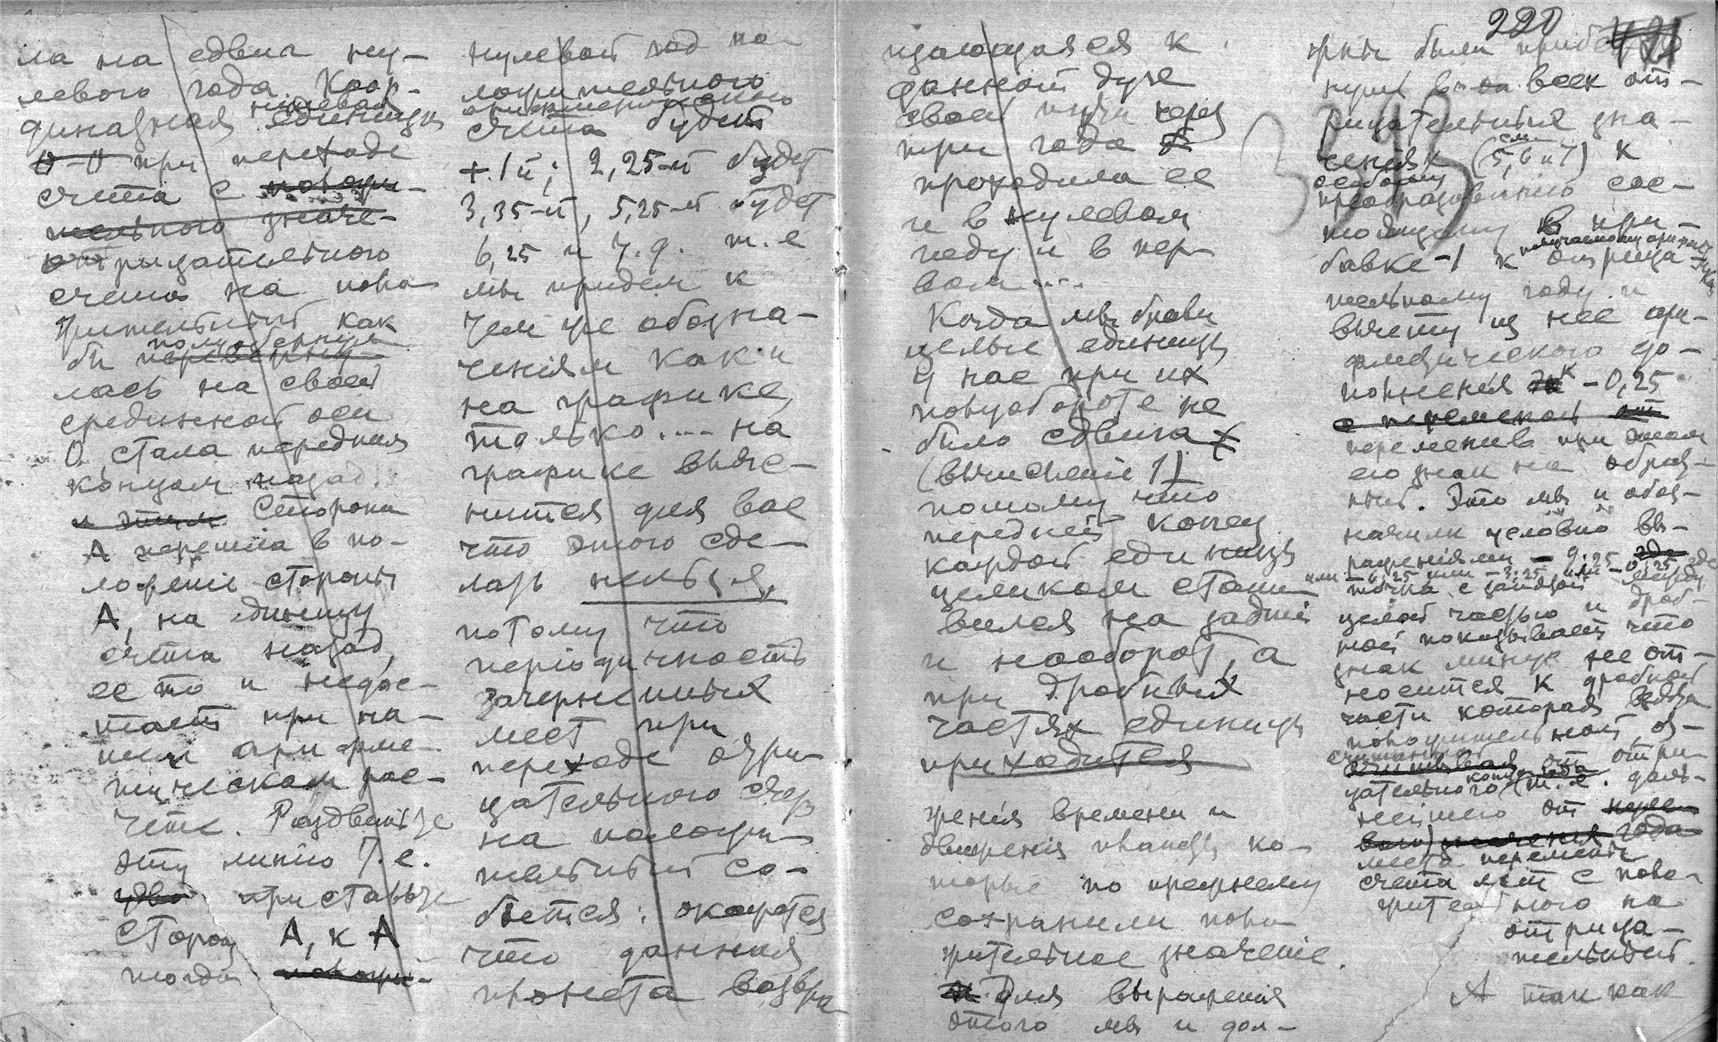 ла на сдвиг ну-
левого года. Коор-
динатная нулевая единица
0-0 при переходе
счета с положи-
тельного значе-
отрицательного
счета на поло
жительный как
бы полуоберну перевёрну-
лась на своей
срединной оси
0, стала передним
концом назад.
и этим Сторона
А перешла в по-
ложеніе стороны
А, на единицу
счета назад,
ее то и недос-
тает при на-
шем арифме-
тическом рас-
чете. Раздвиньте
эту линію Т.е.
приставьте
сторону А, к А
тогда положи-
нулевой год по-
ложительного
арифметического
счета будет
+1й; 2,25-й будет
3,25-й, 5,25-й будет
6,25 и т.д. т.е
мы придем к
тем же обозна-
ченіям как и
на графике,
только.... на
графике выяс-
нится для вас
что этого сде-
лать нельзя,
потому что
періодичность
зачерненных
мест при
переходе отри-
цательного счета
на положи-
тельный со-
бьется: окажется
что данная
планета возвра
щающаяся к
данной дуге
своего пути через
три года
проходила ее
и в нулевом
году и в пер-
вом....
Когда мы брали
целые единицы
у нас при их
полуобороте не
было сдвига
(вычисленіе 1)
потому что
передней конец
каждой единицы
целиком стано
вился на задній
и наоборот, а
при дробных
частях единицы
приходится
зренія времени и
движенія планеты ко-
торые по прежнему
сохранили поло
жительное значеніе.
Для выраженія
этого мы и дол-
220
жны были прибе
нуть во всех от-
рицательных зна-
ченіях (см. 5, 6 и 7) к
особому преобразованію сос-
тоящему в при-
бавке -1 к получаемому отрица-
тельному году и
вычету из нее ари-
фметического до-
полненія к - 0,25
с переменой
переменив при этом
его знак на обрат-
ный. Это мы и обоз-
начили условно вы-
раженіями - 9.25
или - 6.25 или - 3.25 или - 0.25 где
точка с запятой между
целой частью и дроб-
ной показывает что
знак минус не от-
носится к дробной
части которая всегда
положительной
считаемой от отри-
цательного конца года (т.е. даль-
нейшего от нуле-
вого) значенія года
места перемены
счета лет с поло-
жительного на
отрица-
тельный.
А так как